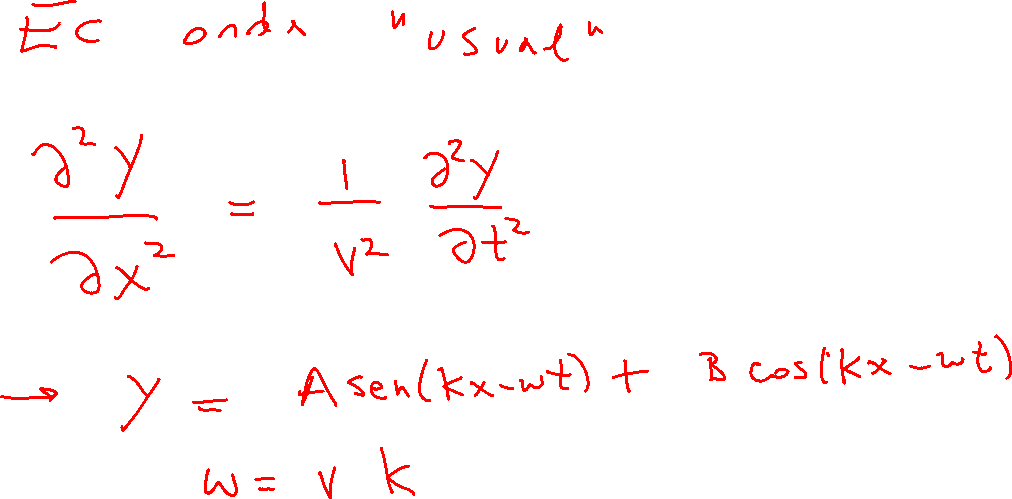 EC onda "usual"
∂²y/∂x² = 1/v² ∂²y/∂t²
→ y = A sen(kx-wt) + B cos(kx-wt)
w = v k